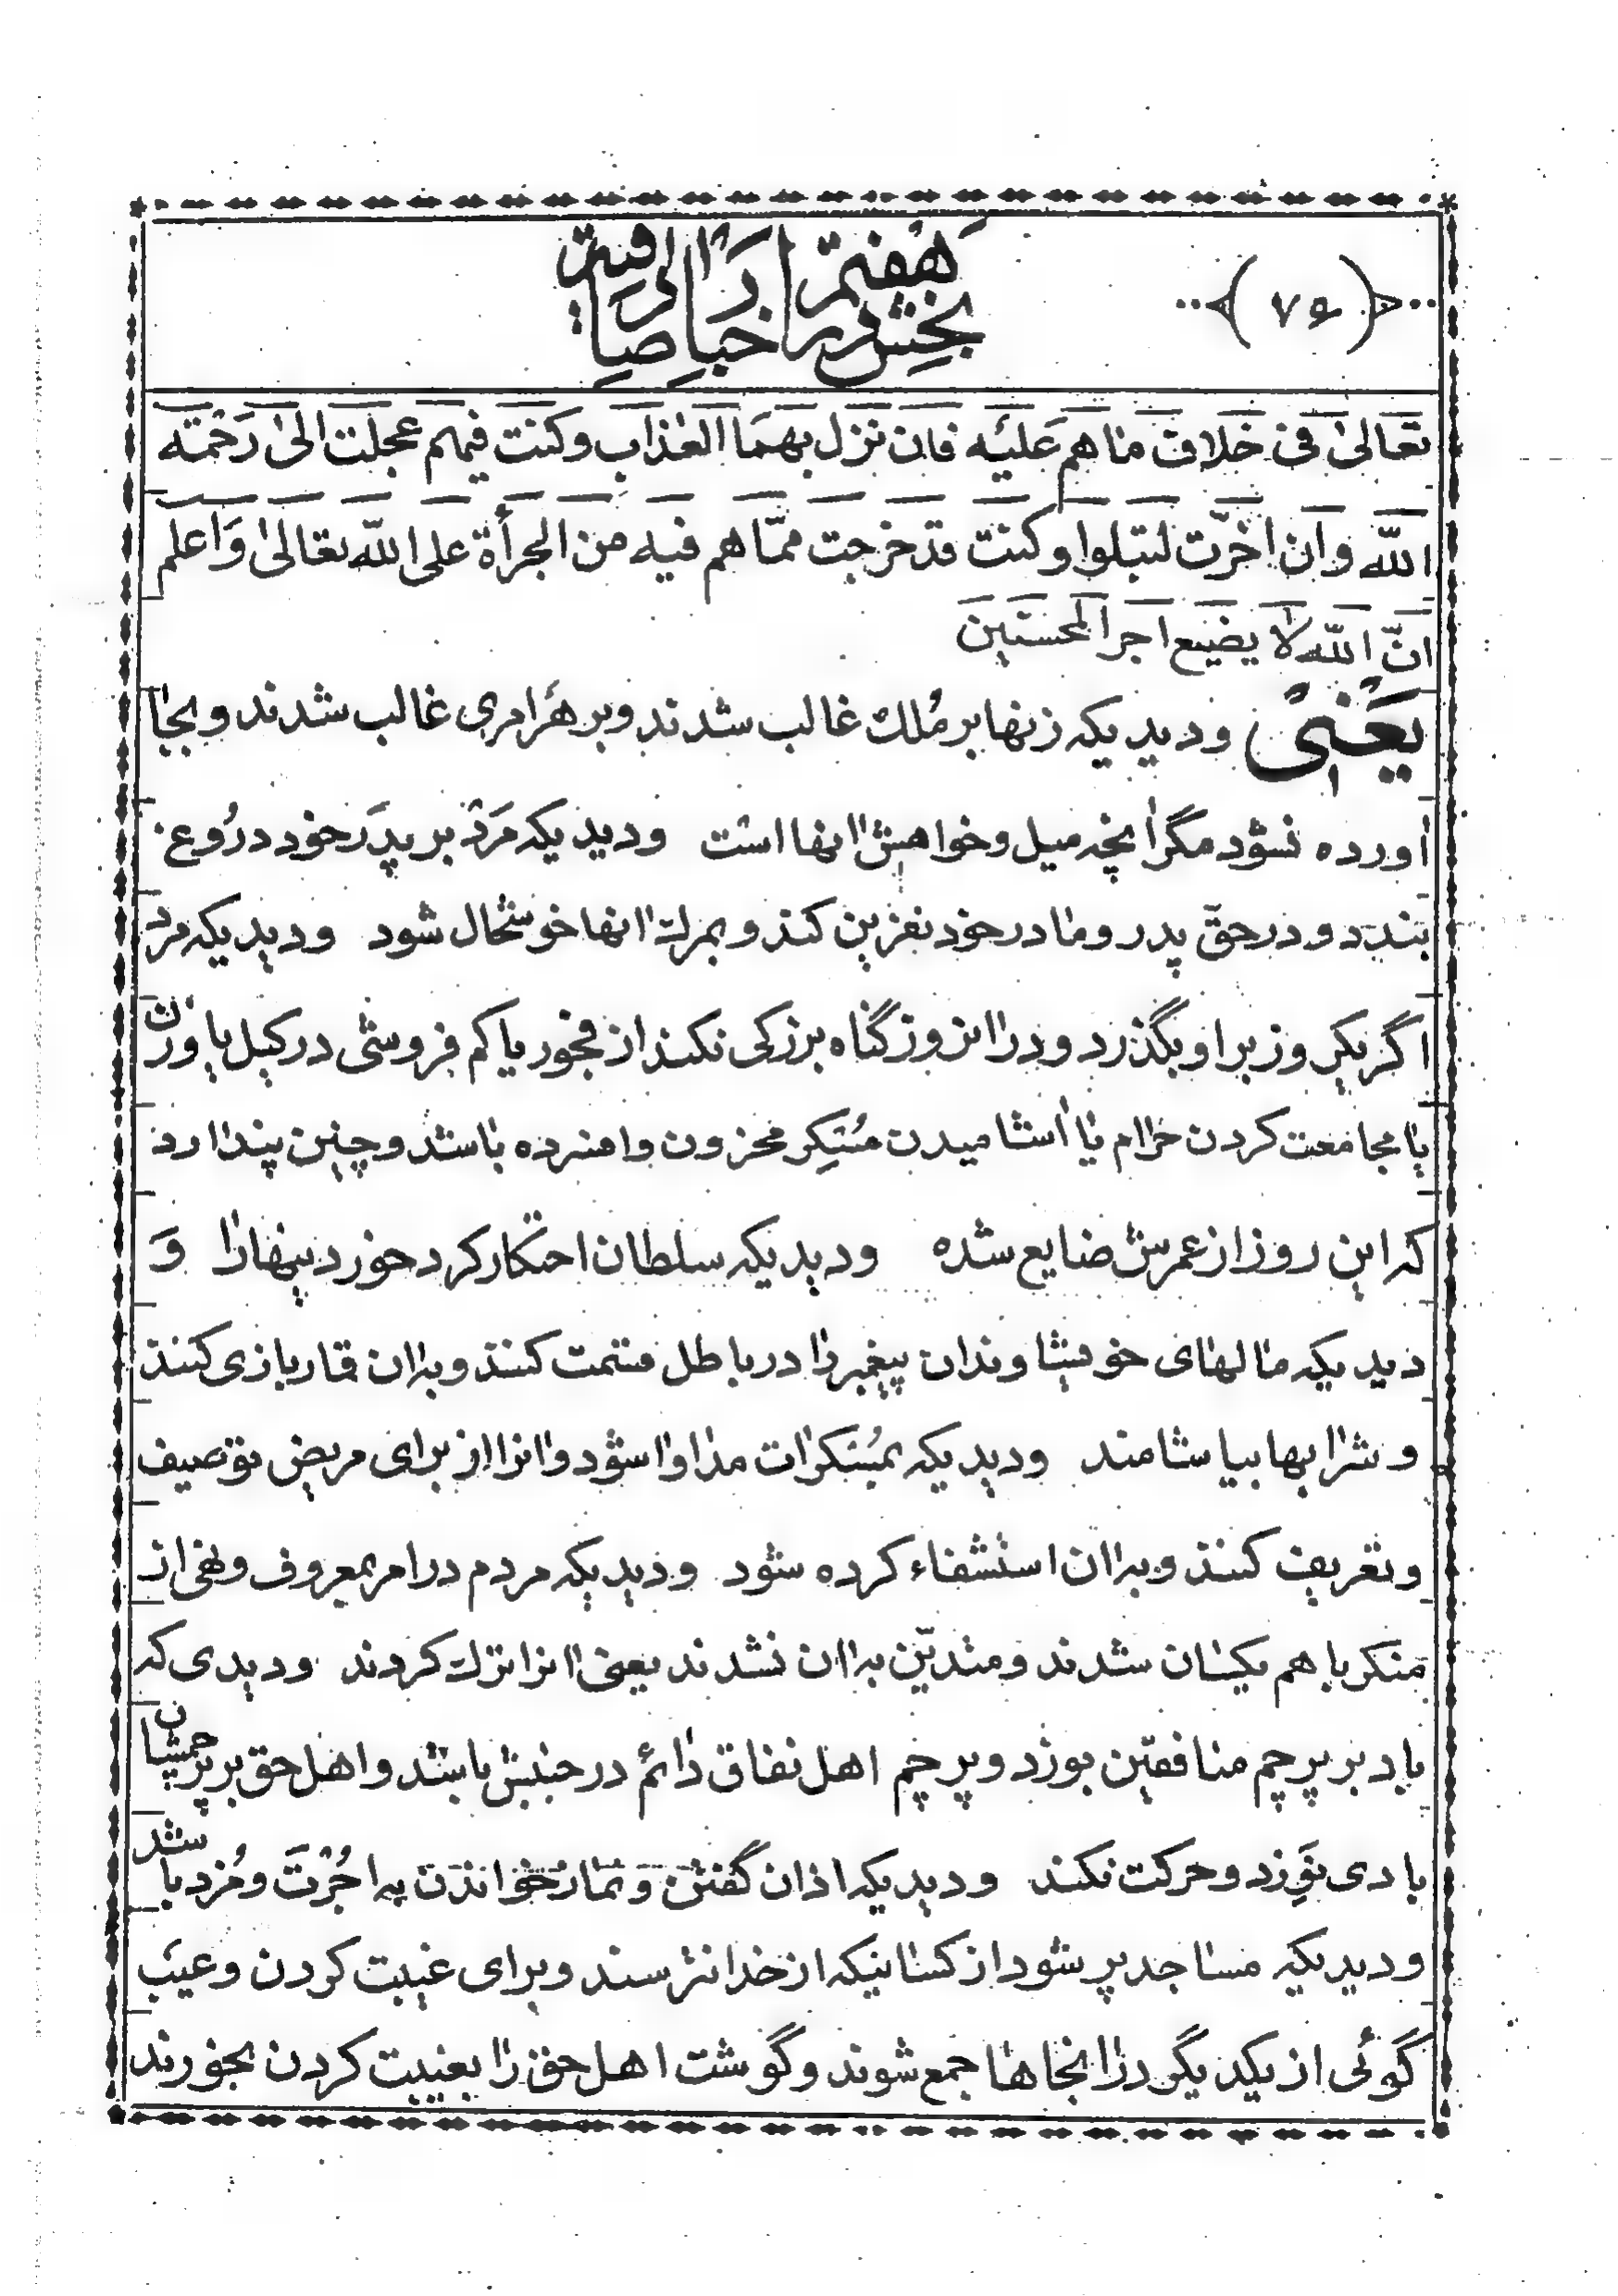 ﴿ ۷۶ ﴾
بخش هفتم در اخبار صادقیه
تعالیٰ فی خلاف ما هم علیه فان نزل بهم العذاب و کنت فیهم عجلت الیٰ رحمة
اللّه و ان اخّرت لتبلوا و کنت قد خرجت ممّا هم فیه من الجرأة علی اللّه تعالیٰ وَ اعلم
انّ اللّه لا یضیع اجر المحسنین
یَعْنی و دیدیکه زنها بر مُلک غالب شدند و بر هَر امری غالب شدند و بجا
آورده نشود مگر آنچه میل و خواهش آنها است و دیدیکه مَرد بر پدَر خود دروُغ
بندد و در حقّ پدر و مادر خود نفرین کند و بمرک آنها خوشحال شود و دیدیکه مرد
اگر یکروز بر او بگذرد و در آنروز گناه بزرکی نکند از فجور یا کم فروشی در کیل یا وزن
یا مجامعت کردن حرام یا آشامیدن مُسکر محزون و افسرده باشد و چنین پندارد
که این روز از عمرش ضایع شده و دیدیکه سلطان احتکار کرد خوردنیها را وَ
دیدیکه مالهای خویشاوندان پیغمبر را در باطل قسمت کنند و بدان قمار بازی کنند
و شرابها بیاشامند و دیدیکه بمُسکرات مداوا شود و آنرا از برای مریض توصیف
و تعریف کنند و بدان استشفاء کرده شود و دیدیکه مردم در امر بمعروف و نهی از
منکر با هم یکسان شدند و متدیّن بدان نشدند یعنی آنرا ترک کردند و دیدی که
باد بر پرچم منافقین بوزد و پرچم اهل نفاق دائم در جنبش باشد و اهل حق بر پرچمشان
بادی نوَزد و حرکت نکند و دیدیکه اذان گفتن و نماز خواندن به اجُرْتَ و مُزد باشد
و دیدیکه مساجد پر شود از کسانیکه از خدا نترسند و برای غیبت کردن و عیب
گوئی از یکدیگر در آنجاها جمع شوند و گوشت اهل حق را بغیبت کردن بخورند